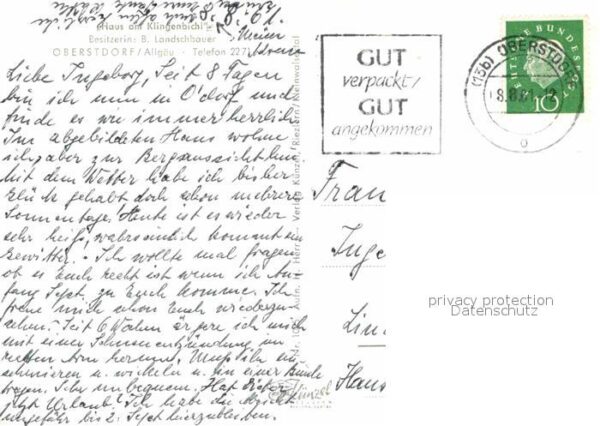 "Haus am Klingenbichl"
Besitzerin: B. Landschbauer
OBERSTDORF / Allgäu - Telefon 2271
8. 61.
Liebe Ingeborg, Seit 8 Tagen
bin ich nun in O'dorf und
finde es wie immer herrlich
Im abgebildeten Haus wohne
ich, aber zur Bergaussicht hin
Mit dem Wetter habe ich bisher
Glück gehabt doch schon mehrere
Sonnentage! Heute ist es wieder
sehr heiß, wahrscheinlich kommt ein
Gewitter. - Ich wollte mal fragen
ob es Euch recht ist wenn ich An-
fang Sept. zu Euch komme. Ich
freue mich schon Euch wiederzu-
sehen. Seit 6 Wochen ärgere ich mich
mit einer Sehnenentzündung am
rechten Arm herum, muß ihn ein
schmieren u. wickeln u. in einer Binde
tragen. Sehr unbequem. Hat
jetzt Urlaub? Ich habe die Absicht
ungefähr bis 2. Sept hierzubleiben.
Verlag Künzel, Riezlern / Kleinwalsertal
Künzel
GUT
verpackt/
GUT
angekommen
(13b) OBERSTDORF
DEUTSCHE BUNDESPOST
10
Frau
Inge
Lin
Haus
privacy protection
Datenschutz